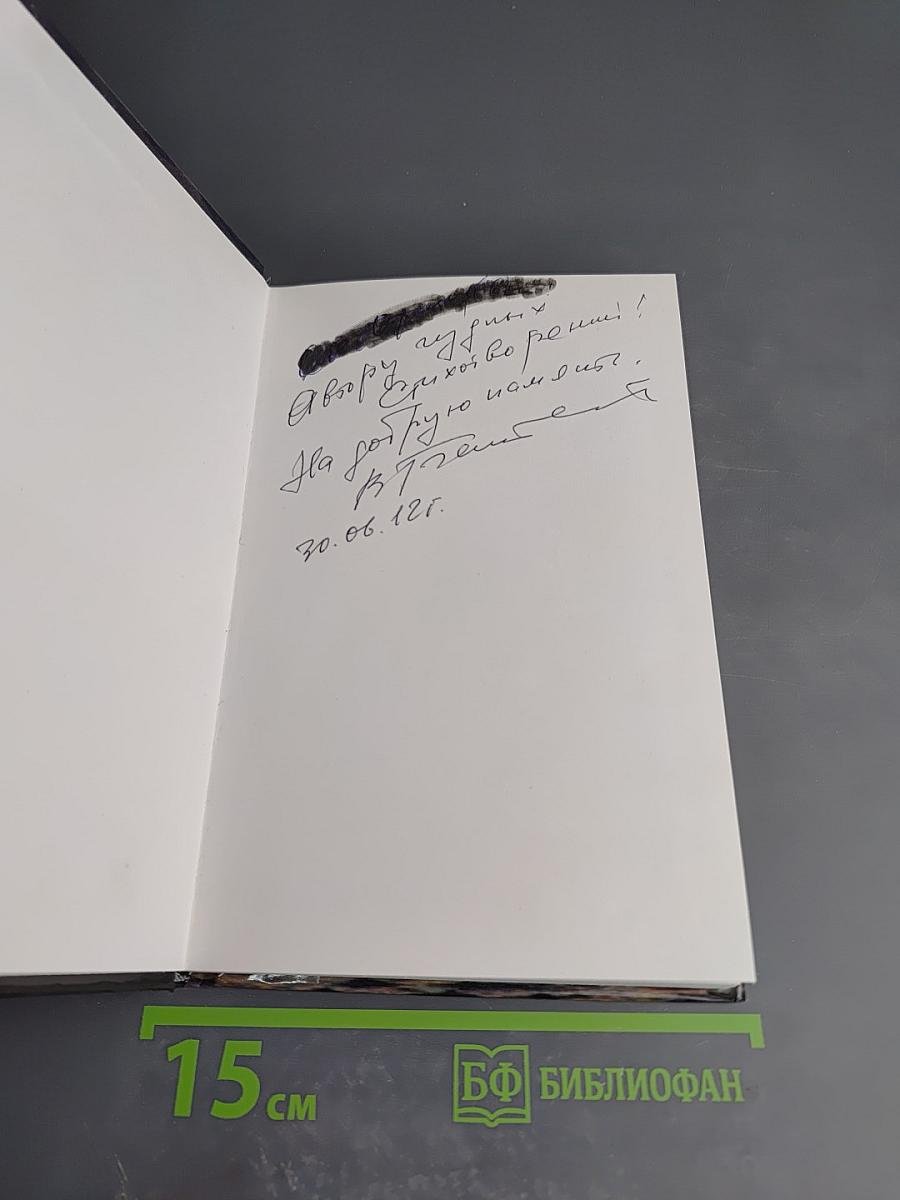 Автору чудных
стихотворений!
На добрую память.
30.06.12г.
15 см
БФ БИБЛИОФАН